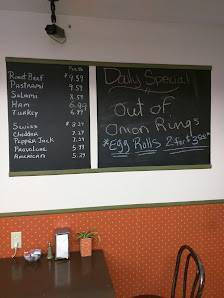 Roast Beef $9.59
Pastrami 9.59
Salami 8.59
Ham 6.99
Turkey 6.99
Swiss
Cheddar 7.29
Pepper Jack 7.29
Provolone 5.29
American 5.29
Daily Special
out of
Onion Rings
*Egg Rolls 2 for $3.50*